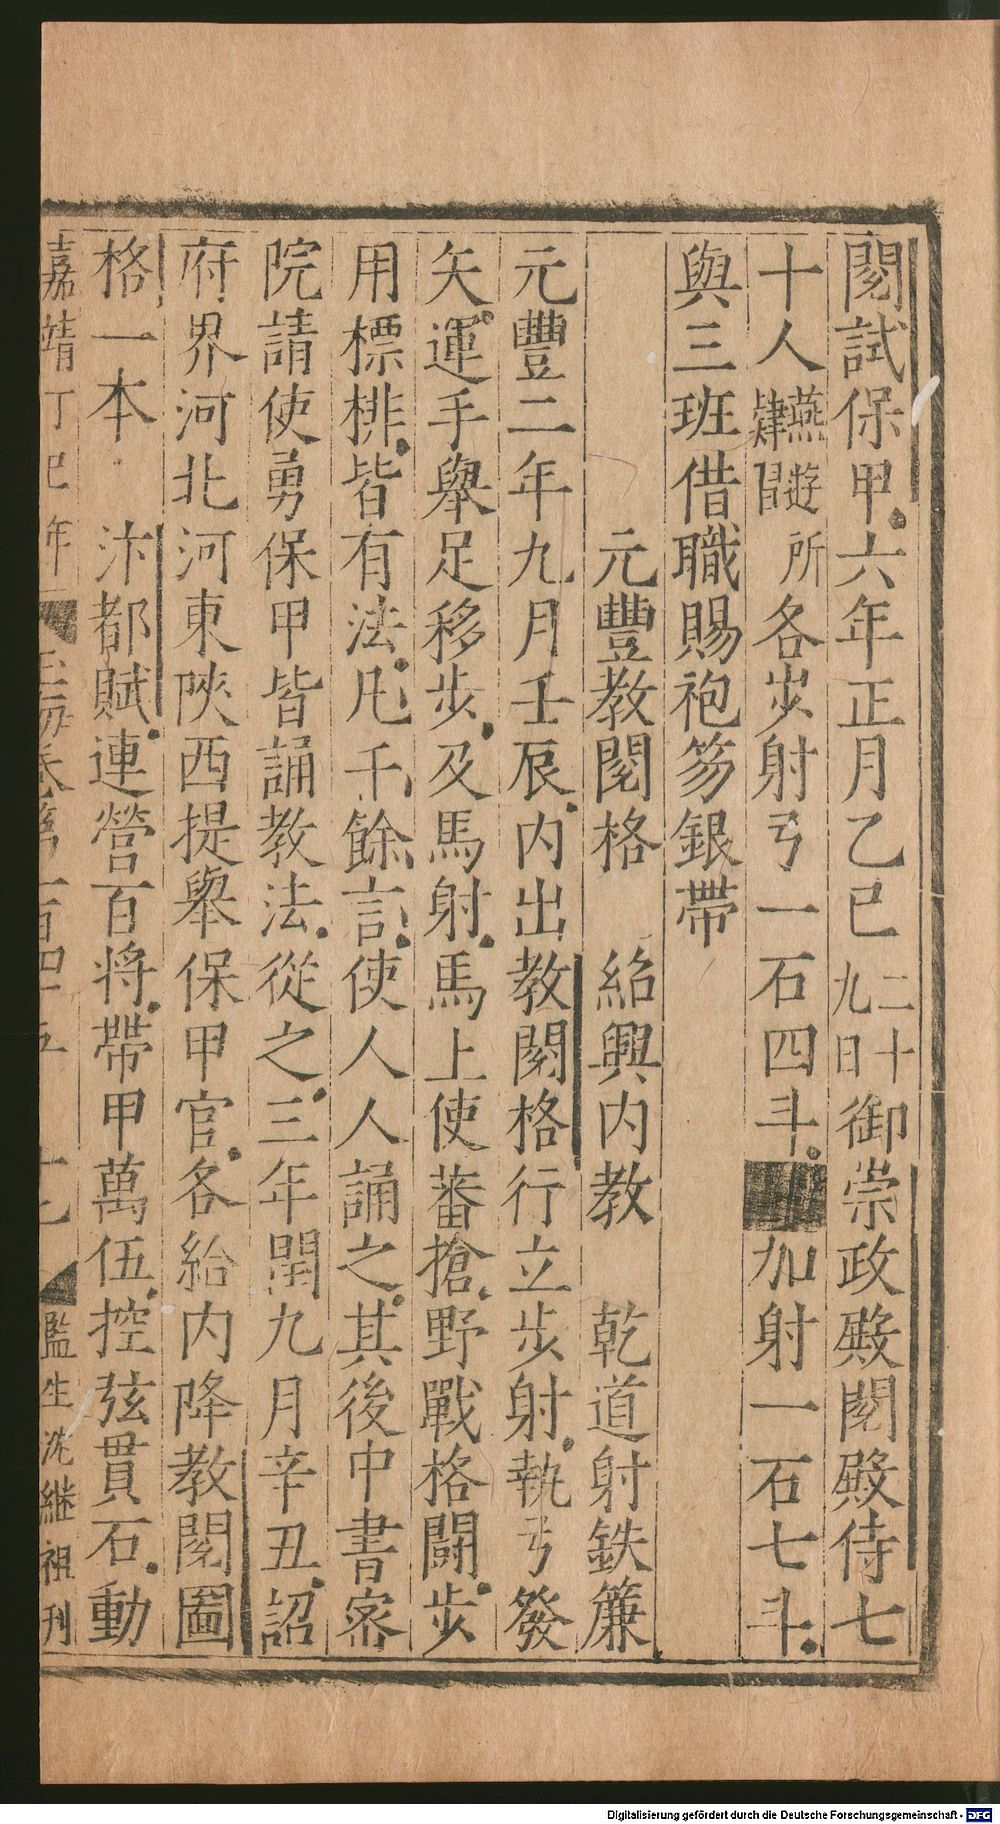 閱試保甲六年正月乙巳二十九日御崇政殿閱殿侍七
十人燕遊肄習所各步射弓一石四斗加射一石七斗
與三班借職賜袍笏銀帶
元豐教閱格 紹興内教 乾道射鉄簾
元豐二年九月壬辰内出教閱格行立步射執弓發
矢運手舉足移步及馬射馬上使蕃槍野戰格鬪步
用標排皆有法凡千餘言使人人誦之其後中書宻
院請使勇保甲皆誦教法從之三年閏九月辛丑詔
府界河北河東陜西提舉保甲官各給内降教閱圖
格一本 汴都賦連營百將帶甲萬伍控弦貫石動
嘉靖丁巳年 玉海卷第一百四十五 十七 監生沈継祖刊
Digitalisierung gefördert durch die Deutsche Forschungsgemeinschaft - DFG